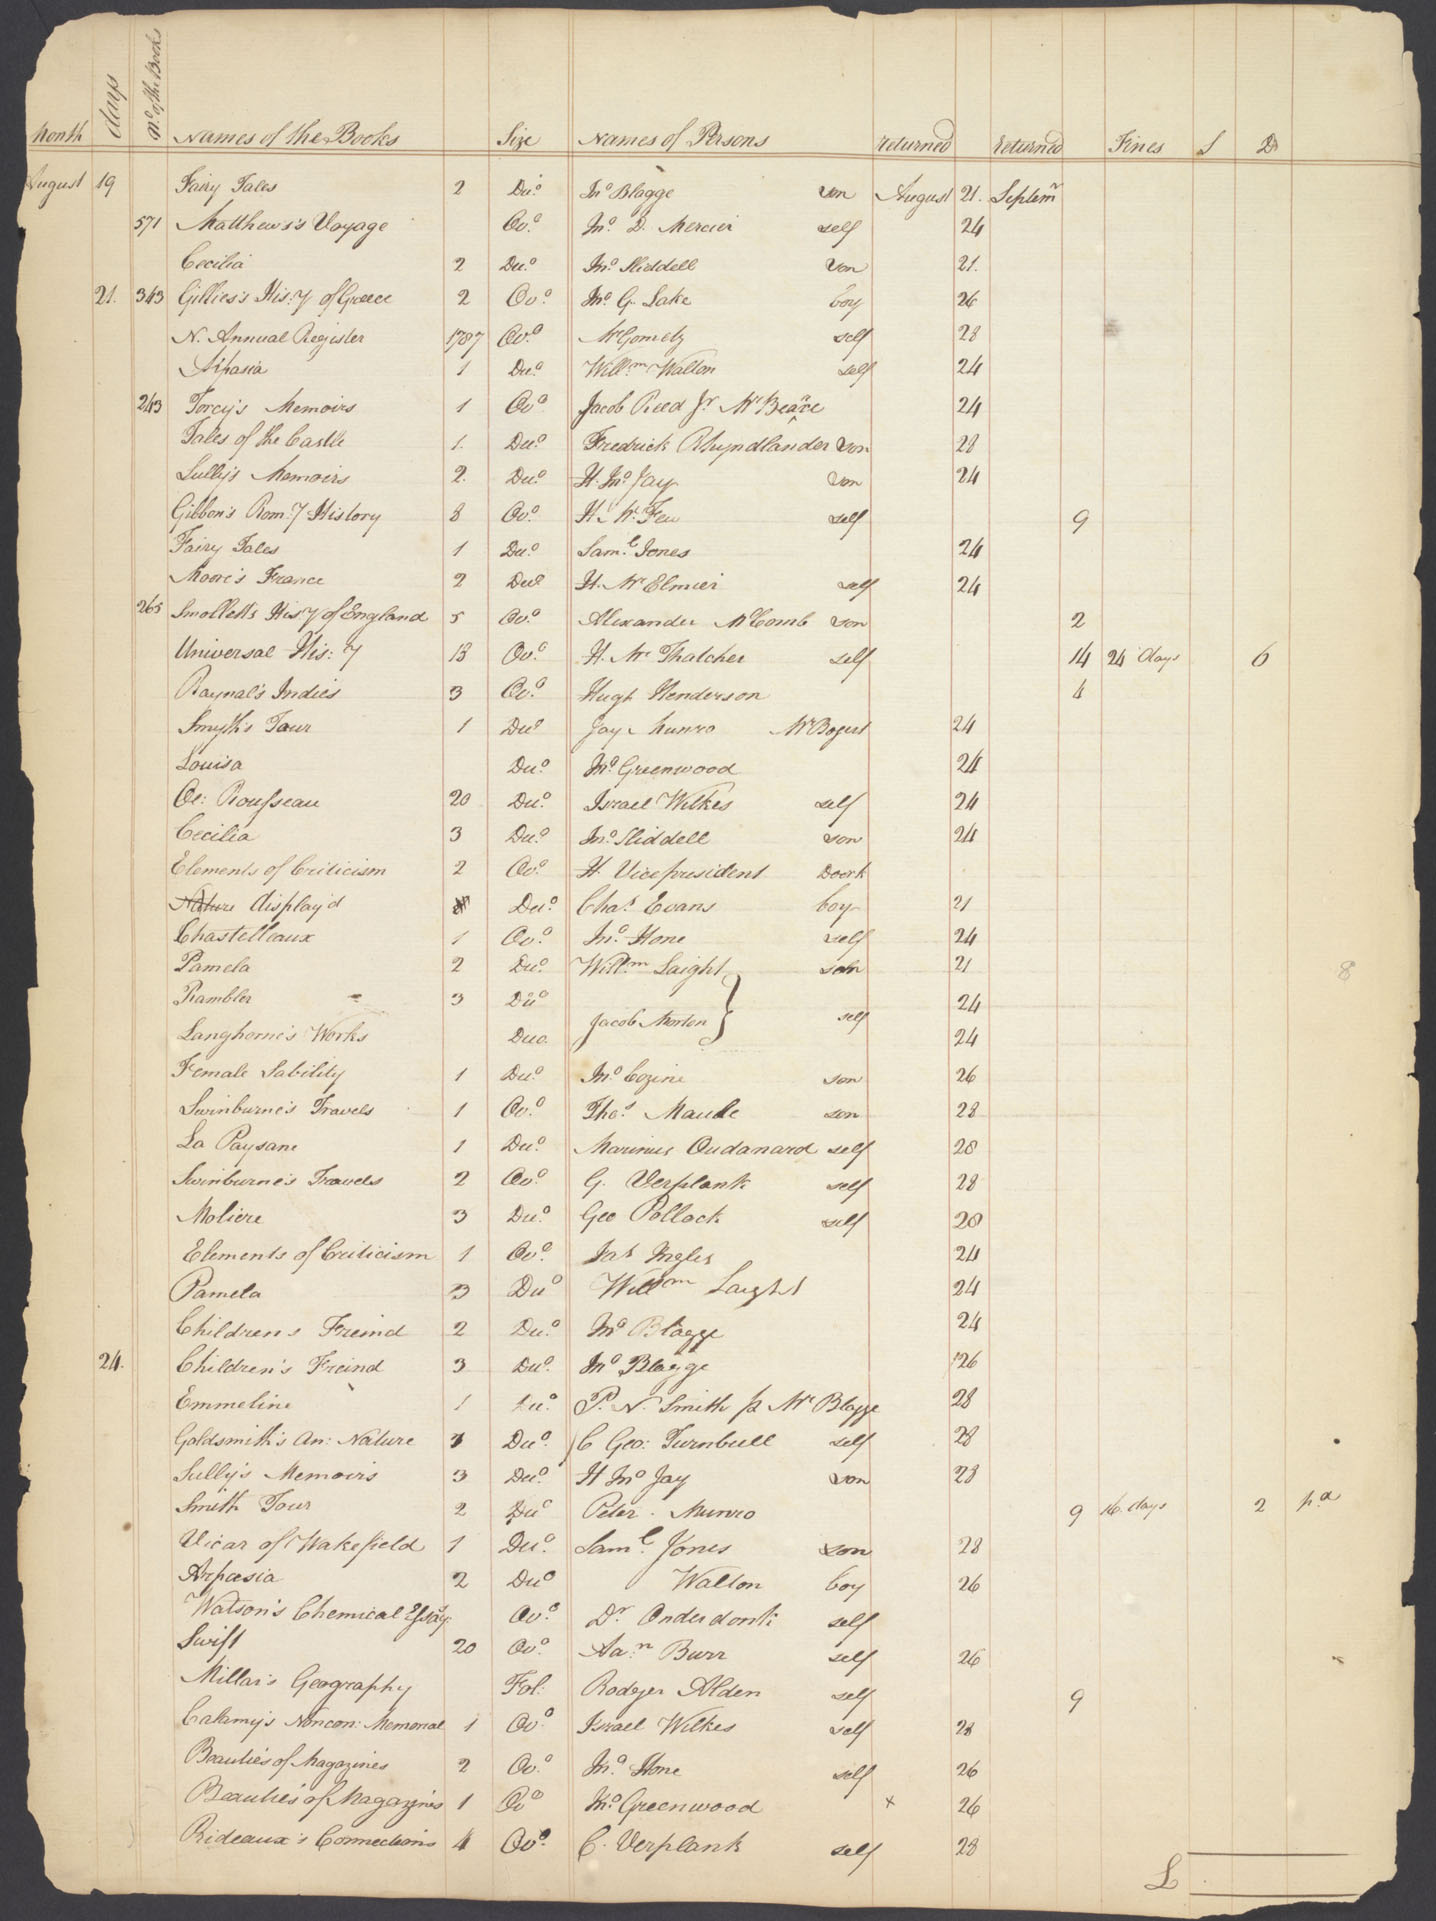 Month days No of the Books Names of the Books Size Names of Persons returned returned Fines S D
August 19 Fairy Tales 2 Duo Jno Blagge son August 21. Septemr
571 Matthews's Voyage Ovo Jno D. Mercier self 24
Cecilia 2 Duo Jno Sliddell son 21.
21. 343 Gillies's His:y of Greece 2 Ovo Jno G. Lake boy 26
N. Annual Register 1787 Ovo Mr Gometz self 28
Aspasia 1 Duo Willm Walton self 24
243 Torcy's Memoirs 1 Ovo Jacob Reed Jr Mr 24
Tales of the Castle 1. Duo Fredrick Rhyndlander son 28
Sully's Memoirs 2. Duo H. Jno Jay son 24
Gibbon's Rom:y History 8 Ovo H. Mr Few self 9
Fairy Tales 1 Duo Saml Jones 24
Moore's France 2 Duo H. Mr Elmier self 24
265 Smollett's His:y of England 5 Ovo Alexander McComb son 2
Universal His:y 13 Ovo H. Mr Thatcher self 14 24 days 6
Raynal's Indies 3 Ovo Hugh Henderson 4
Smyth's Tour 1 Duo Jay Munro Mr Bogert 24
Louisa Duo Jno Greenwood 24
Oe: Rousseau 20 Duo Israel Wilkes self 24
Cecilia 3 Duo Jno Sliddell son 24
Elements of Criticism 2 Ovo H. Vicepresident Doork
Nature display'd Duo Chas Evans boy 21
Chastelleaux 1 Ovo Jno Hone self 24
Pamela 2 Duo Willm Laight son 21
8
Rambler 3 Duo 24
Jacob Morton } self
Langhorne's Works Duo 24
Female Sability 1 Duo Jno Cozine son 26
Swinburne's Travels 1 Ovo Thos Maude son 28
La Paysane 1 Duo Marinus Oudanard self 28
Swinburne's Travels 2 Ovo G. Verplank self 28
Moliere 3 Duo Geo Pollock self 28
Elements of Criticism 1 Ovo Jas Ingles 24
Pamela 3 Duo Willom Laight 24
Childrens Freind 2 Duo Jno Blagge 24
24. Children's Freind 3 Duo Jno Blagge 26
Emmeline 1 Duo P. N. Smith p Mr Blagge 28
Goldsmith's An: Nature Duo C Geo: Turnbull self 28
Sully's Memoirs 3 Duo H Jno Jay son 28
Smith Tour 2 Duo Peter. Munro 9 16 days 2 pd
Vicar of Wakefield 1 Duo Saml Jones son 28
Arpasia 2 Duo Walton boy 26
Watson's Chemical Essay Ovo Dr Onderdonk self
Swift 20 Ovo Aa:n Burr self 26
Millar's Geography Fol: Rodger Alden self 9
Calamy's Noncon: Memorial 1 Ovo Israel Wilkes self 28
Beautie's of Magazines 2 Ovo Jno Hone self 26
Beautie's of Magazines 1 Ovo Jno Greenwood x 26
Rideaux's Connections 4 Ovo C. Verplank self 28
£